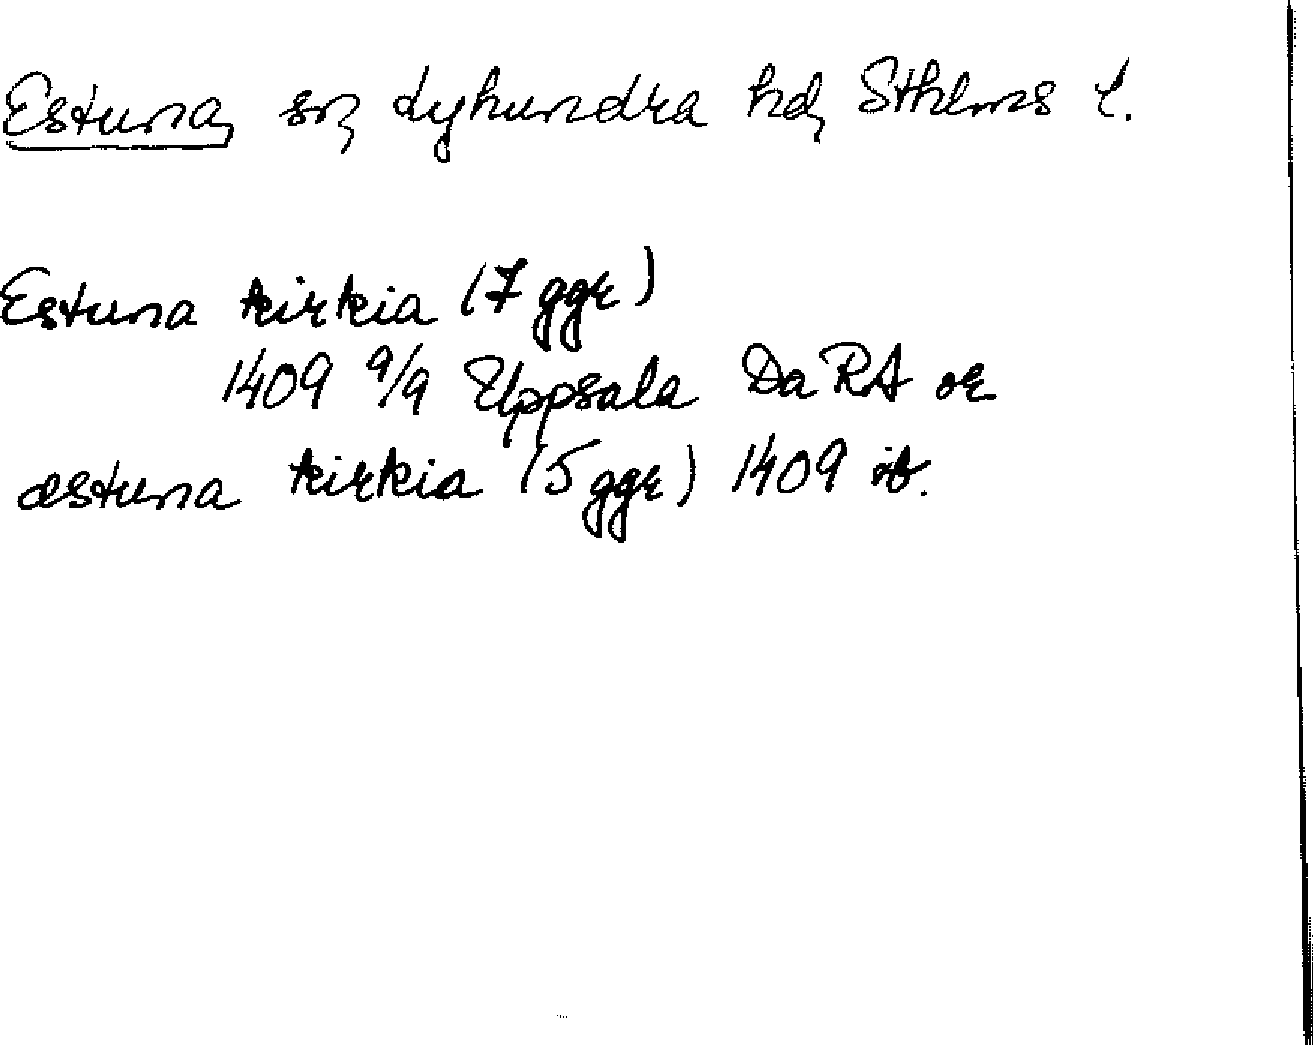 Estuna, sn, Lyhundra hd, Sthlms l.
Estuna kirkia (7 ggr)
1409 9/9 Uppsala Da RA or
æstuna kirkia (5 ggr) 1409 ib.